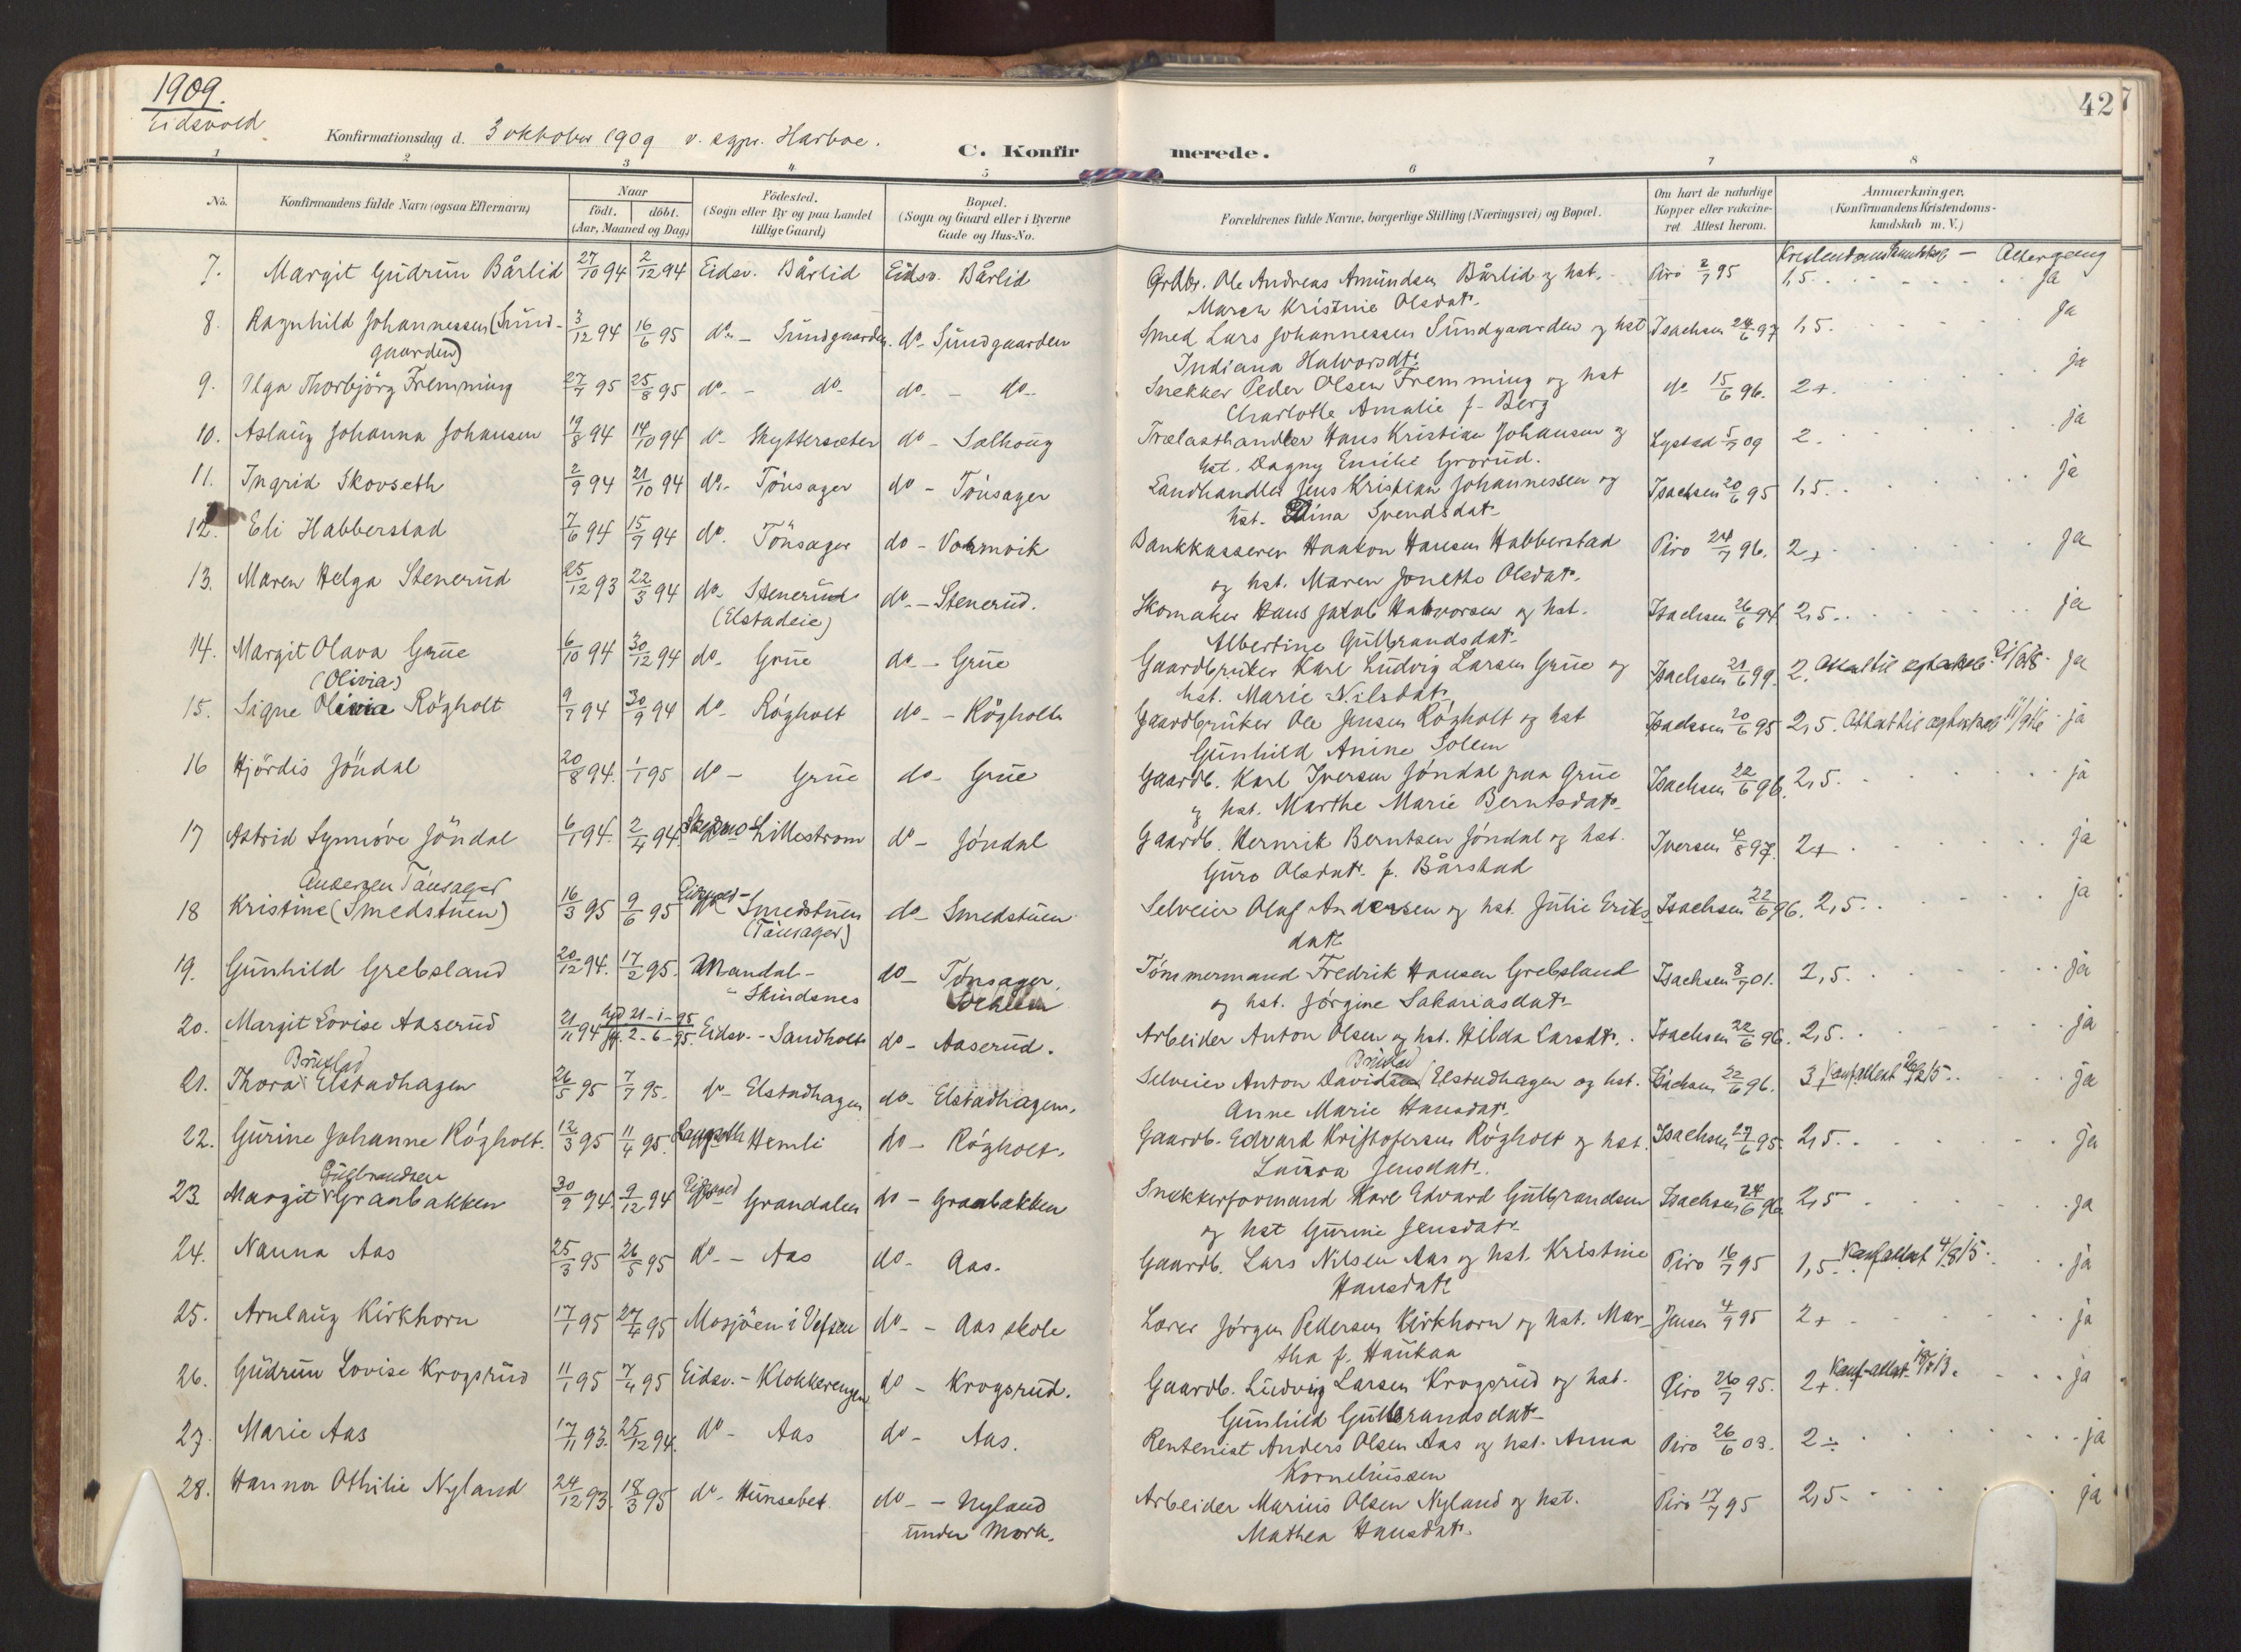 1909.
Eidsvold
Konfirmationsdag d. 3 oktober 1909 v. sgpr. Harboe.
C. Konfirmerede.
427
1 2 3 4 5 6 7 8
No. Konfirmandens fulde Navn (ogsaa Efternavn) Naar födt. döbt. (Aar, Maaned og Dag) Födested. (Sogn eller By og paa Landet tillige Gaard) Bopæl. (Sogn og Gaard eller i Byerne Gade og Hus-No. Forældrenes fulde Navne, borgerlige Stilling (Næringsvei) og Bopæl. Om havt de naturlige Kopper eller vaccineret. Attest herom. Anmærkninger. (Konfirmandens Kristendomskundskab m. V.)
Kristendomskundskab — Altergang
7. Margit Gudrun Bårlid 27/10 94 2/12 94 Eidsv. Bårlid Eidsv. Bårlid Grdbr. Ole Andreas Amundsen Bårlid og hst. Piro 2/7 95 1,5. ja
Maren Kristine Olsdat.
8. Ragnhild Johannessen (Sund- 3/12 94 16/6 95 do - Sundgaarden. do - Sundgaarden Smed Lars Johannessen Sundgaarden og hst Isachsen 24/6 97 1,5. ja
gaarden) Indiana Halvorsdt.
9. Olga Thorbjörg Fremming 27/7 95 25/8 95 do - do do - do Snekker Peder Olsen Fremming og hst do 15/6 96. 2+. ja
Charlotte Amalie f. Berg
10. Aslaug Johanna Johansen 19/8 94 14/10 94 do - Skyttersæter do - Solhoug Trælasthandler Hans Kristian Johansen og Lystad 5/7 09 2. ja
hst. Dagny Emilie Grorud.
11. Ingrid Skovseth 2/9 94 21/10 94 do - Tönsager do - Tönsager Landhandler Jens Kristian Johannessen og Isachsen 20/6 95 1,5. ja
hst. Dina Svendsdat.
12. Eli Habberstad 7/6 94 15/7 94 do. Tönsager do - Vormvik Bankkasserer Haakon Hansen Habberstad Piro 24/7 96. 2+ ja
og hst. Maren Jonette Olsdat.
13. Maren Helga Stenerud 25/12 93 22/3 94 do - Stenerud do - Stenerud. Skomaker Hans Jakob Halvorsen og hst. Isachsen 26/6 94 2,5. ja
(Elstadeie) Albertine Gulbrandsdat.
14. Margit Olava Grue 6/10 94 30/12 94 do - Grue do - Grue Gaardbruker Karl Ludvig Larsen Grue og Isachsen 21/6 99. 2. Attest til egteskab ja
hst. Marie Nilsdat.
(Olivia)
15. Signe Olivia Rögholt 9/7 94 30/9 94 do - Rögholt do - Rögholt Gaardbruker Ole Jensen Rögholt og hst Isachsen 20/6 95 2,5. Attest til egteskab 11/9 16 ja
Gunhild Anine Solem
16 Hjördis Jöndal 20/8 94. 1/1 95 do - Grue do - Grue Gaardb. Karl Iversen Jöndal paa Grue Isachsen 22/6 96. 2,5. ja
og hst. Marthe Marie Berntsdat.
17 Astrid Synnöve Jöndal 6/1 94. 2/4 94 Skedsmo Lillestrom do - Jöndal Gaardb. Henrik Berntsen Jöndal og hst. Iversen 4/8 97. 2+ ja
Guro Olsdat. f. Bårstad
Andersen Tönsager
18 Kristine (Smedstuen) 16/3 95 9/6 95 Eidsvold - Smedstuen do - Smedstuen Selveier Olaf Andersen og hst. Julie Eriks Isachsen 22/6 96. 2,5. ja
(Tönsager) datr
19. Gunhild Grebsland 20/12 94. 17/2 95. Mandal - do - Tönsager. Tömmermand Fredrik Hansen Grebsland Isachsen 8/7 01. 2,5. ja
- Skindsnes og hst. Jörgine Sakariasdat.
20. Margit Lovise Aaserud 21/11 94 hjd. 21-1-95 Eidsv. - Sandholt do - Aaserud. Arbeider Anton Olsen og hst. Hilda Larsdt. Isachsen 22/6 96. 2,5. ja
2-6-95.
Brustad Brustad
21. Thora Elstadhagen 26/5 95 7/7 95. do - Elstadhagen do - Elstadhagen. Selveier Anton Davidsen Elstadhagen og hst. Isachsen 22/6 96. 3 Konf.attest ja
Anne Marie Hansdat.
22. Gurine Johanne Rögholt. 12/3 95 11/4 95. Hemli do - Rögholt. Gaardb. Edvard Kristofersen Rögholt og hst. Isachsen 27/6 95. 2,5. ja
Laura Jensdat.
Gulbrandsen
23 Margit Granbakken 30/9 94. 9/12 94 Eidsvold Grandalen do - Granbakken Snekkerformand Karl Edvard Gulbrandsen Isachsen 24/6 96. 2,5 ja
og hst Gurine Jensdat.
24. Nanna Aas 25/3 95 26/5 95 do - Aas do - Aas. Gaardb. Lars Nilsen Aas og hst. Kristine Piro 16/7 95 1,5. Konf.attest 4/8 15. ja
Hansdatr
25. Arnlaug Kirkhorn 17/1 95 27/4 95 Mosjöen i Vefsen do - Aas skole Lærer Jörgen Pedersen Kirkhorn og hst. Mar- Jensen 4/9 95 2+ ja
tha f. Haukaa
26. Gudrun Lovise Krogsrud 11/1 95 7/4 95 Eidsv. - Klokkerengen do - Krogsrud. Gaardb. Ludvig Larsen Krogsrud og hst. Piro 26/7 95. 2+. Konf-attest ja
Gunhild Gulbrandsdat.
27. Marie Aas 17/11 93. 25/12 94. do - Aas do - Aas. Rentenist Anders Olsen Aas og hst. Anna Piro 26/6 03. 2÷ ja
Korneliussen
28. Hanna Othilie Nyland 24/12 93. 18/3 95 do - Hunsebet do - Nyland Arbeider Marius Olsen Nyland og hst. Piro 17/7 95 2,5. ja
under Mork. Mathea Hansdat.